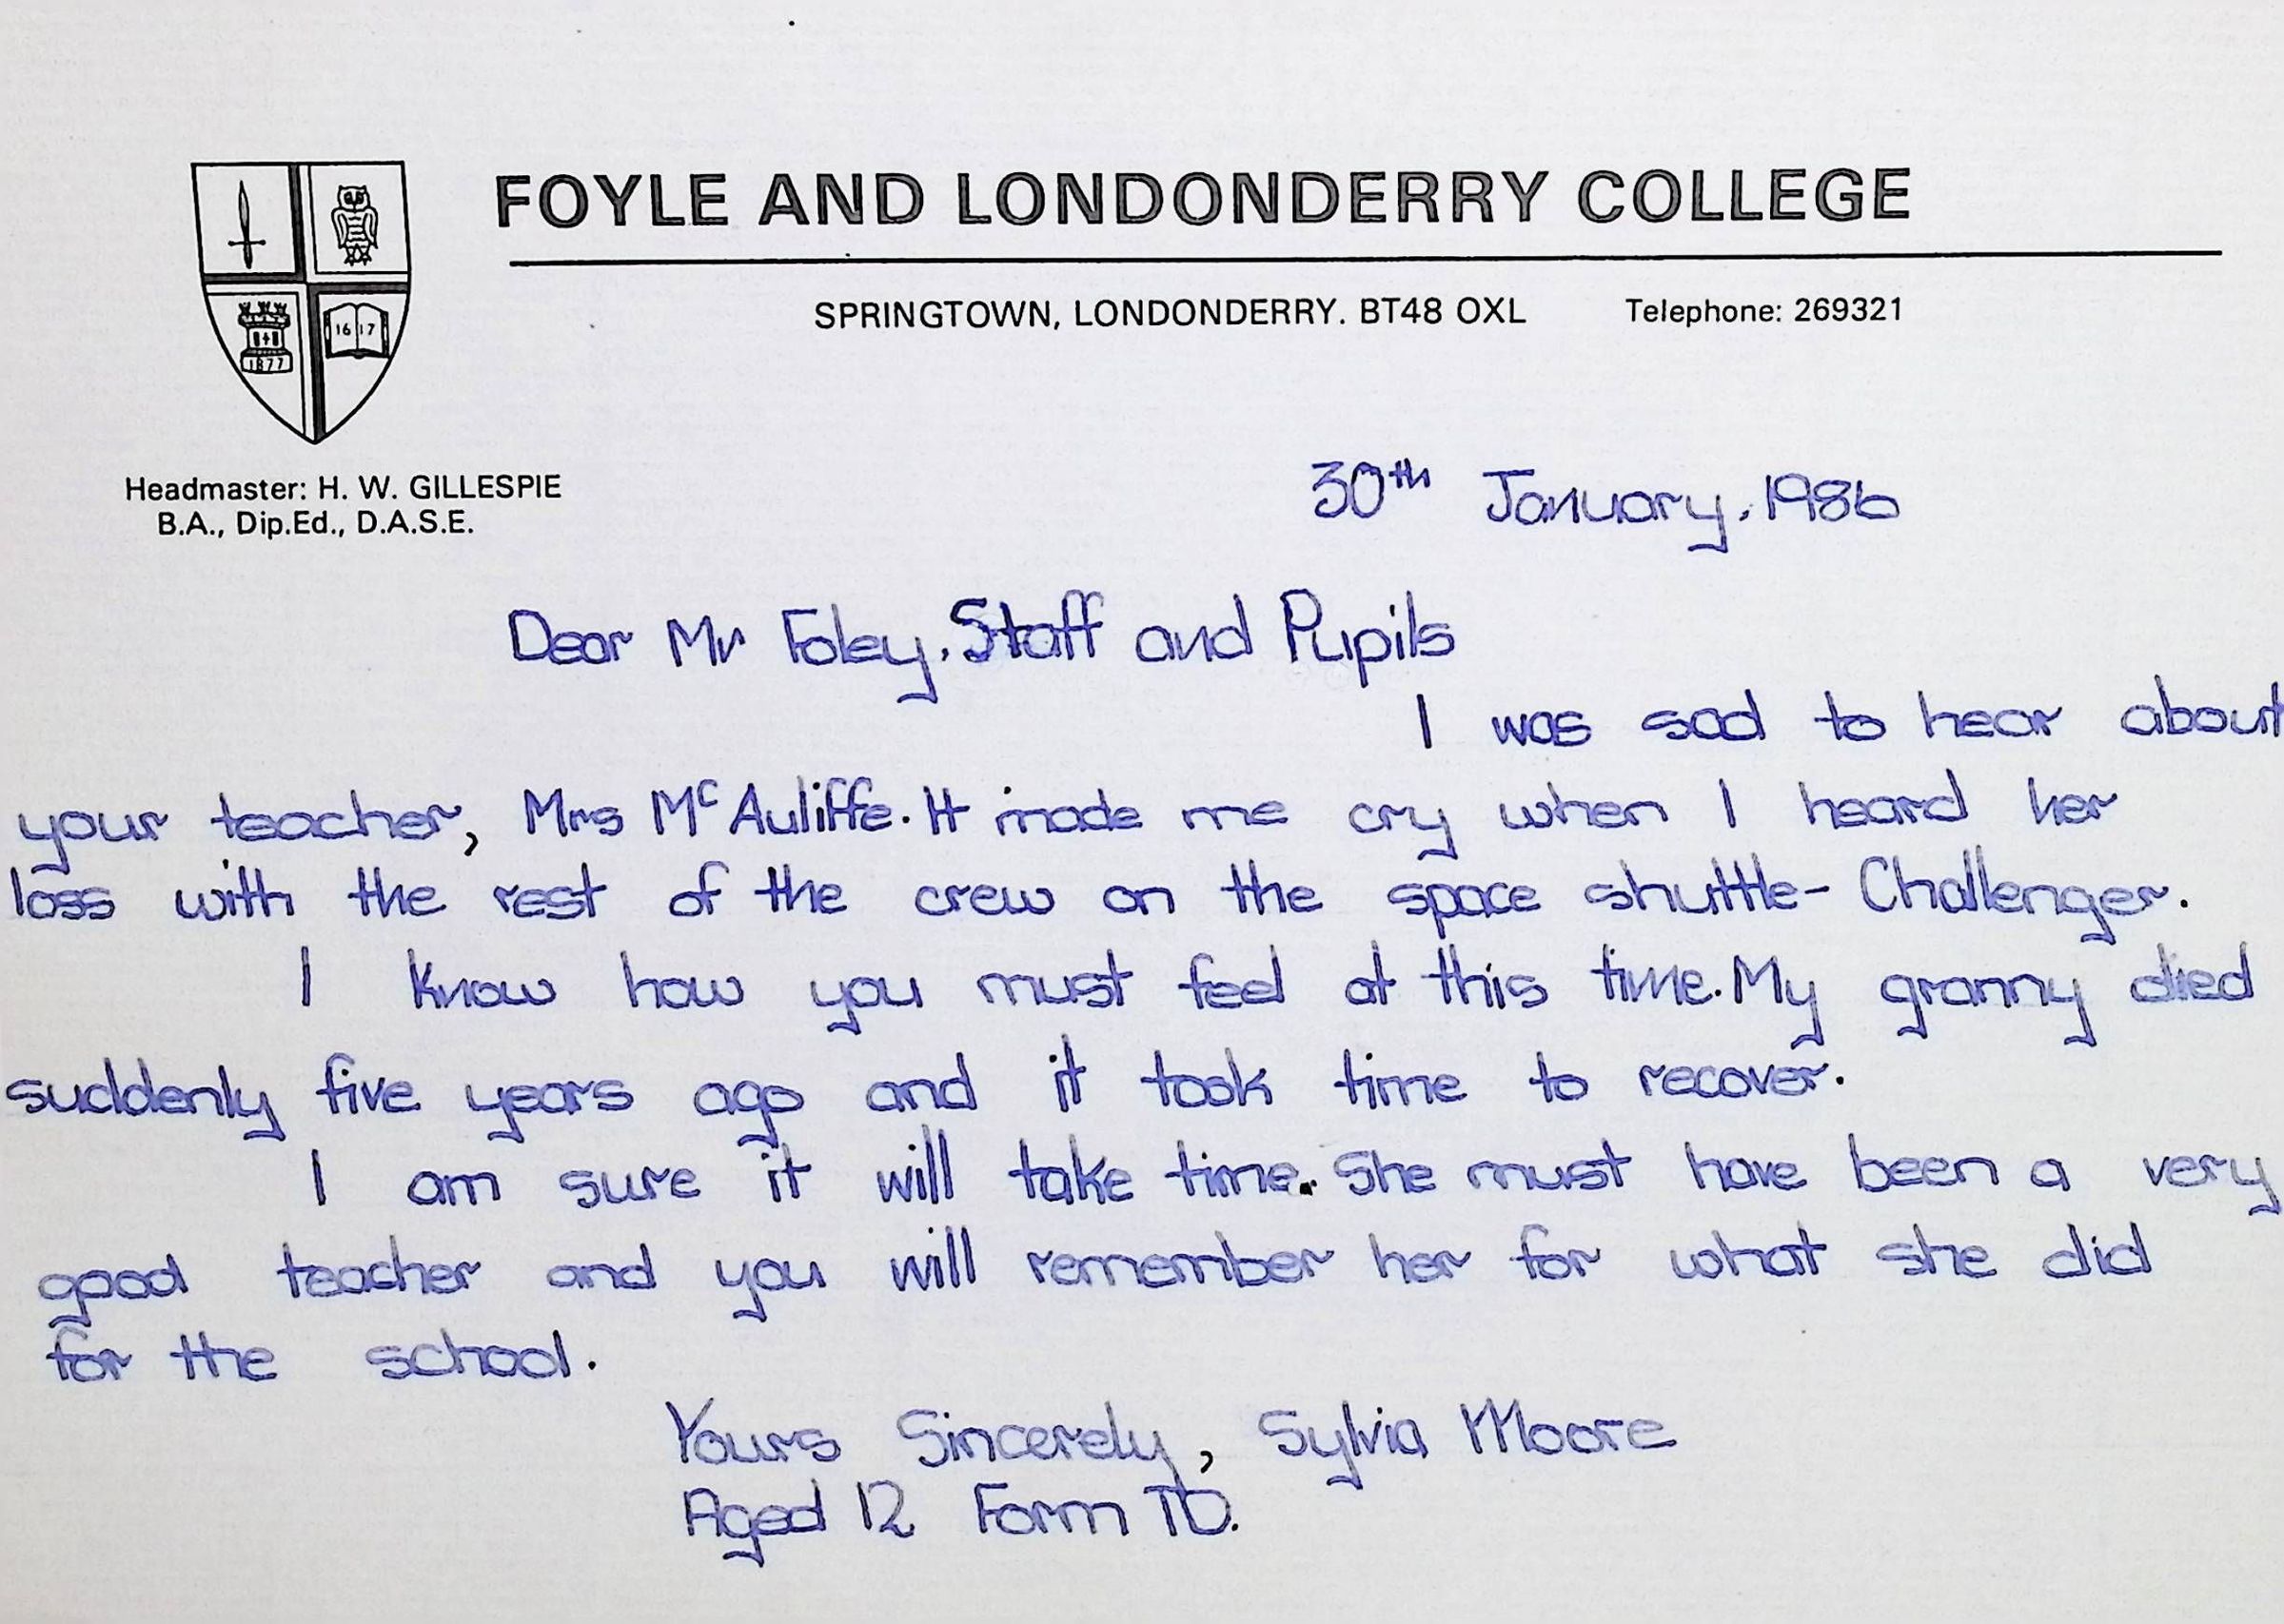 FOYLE AND LONDONDERRY COLLEGE
SPRINGTOWN, LONDONDERRY. BT48 OXL Telephone: 269321
16 17
1877
Headmaster: H. W. GILLESPIE
B.A., Dip.Ed., D.A.S.E.
30th January, 1986
Dear Mr Foley, Staff and Pupils
I was sad to hear about
your teacher, Mrs McAuliffe. It made me cry when I heard her
loss with the rest of the crew on the space shuttle- Challenger.
I know how you must feel at this time. My granny died
suddenly five years ago and it took time to recover.
I am sure it will take time. She must have been a very
good teacher and you will remember her for what she did
for the school.
Yours Sincerely, Sylvia Moore
Aged 12 Form